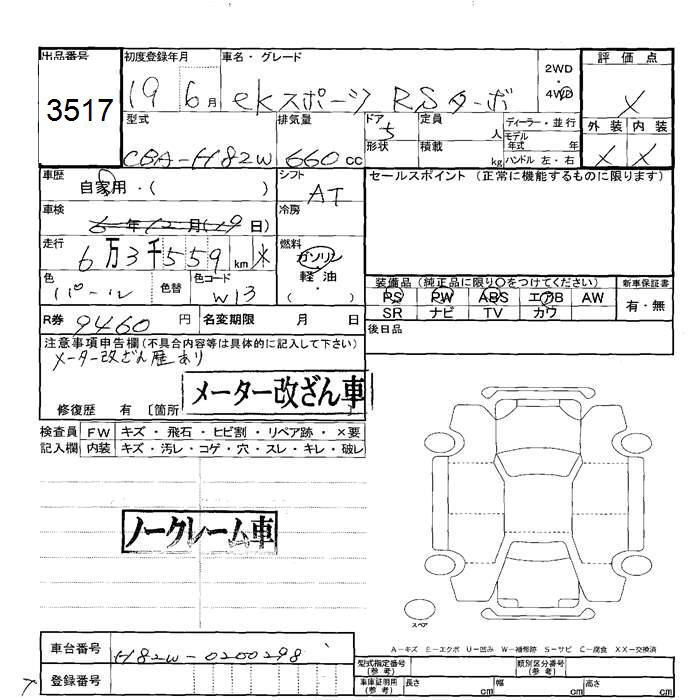 出品番号
3517
初度登録年月
19 6月
車名・グレード
ekスポーツ RSターボ
2WD
4WD
評価点
X
外装 内装
X X
型式
CBA-H82W
排気量
660cc
ドア
5
形状
定員
人
積載
kg
ディーラー・並行
モデル
年式 年
ハンドル 左・右
車歴
自家用・( )
シフト
AT
セールスポイント (正常に機能するものに限ります)
車検
6年12月(19日)
冷房
走行
6万3千559km
燃料
ガソリン
軽油
( ・ )
色
パール
色替
色コード
W13
装備品 (純正品に限り○をつけてください)
PS PW ABS エアB AW
SR ナビ TV カワ
新車保証書
有・無
R券 9460円
名変期限 月 日
後日品
注意事項申告欄(不具合内容等は具体的に記入して下さい)
メーター改ざん歴あり
メーター改ざん車
修復歴 有 〔箇所
検査員
記入欄
FW キズ・飛石・ヒビ割・リペア跡・×要
内装 キズ・汚レ・コゲ・穴・スレ・キレ・破レ
ノークレーム車
スペア
A-キズ E-エクボ U-凹み W-補修跡 S-サビ C-腐食 XX-交換済
車台番号 H82W-0200298
登録番号
型式指定番号
(参考)
類別区分番号
(参考)
車庫証明用
(参考)
長さ cm
幅 cm
高さ cm